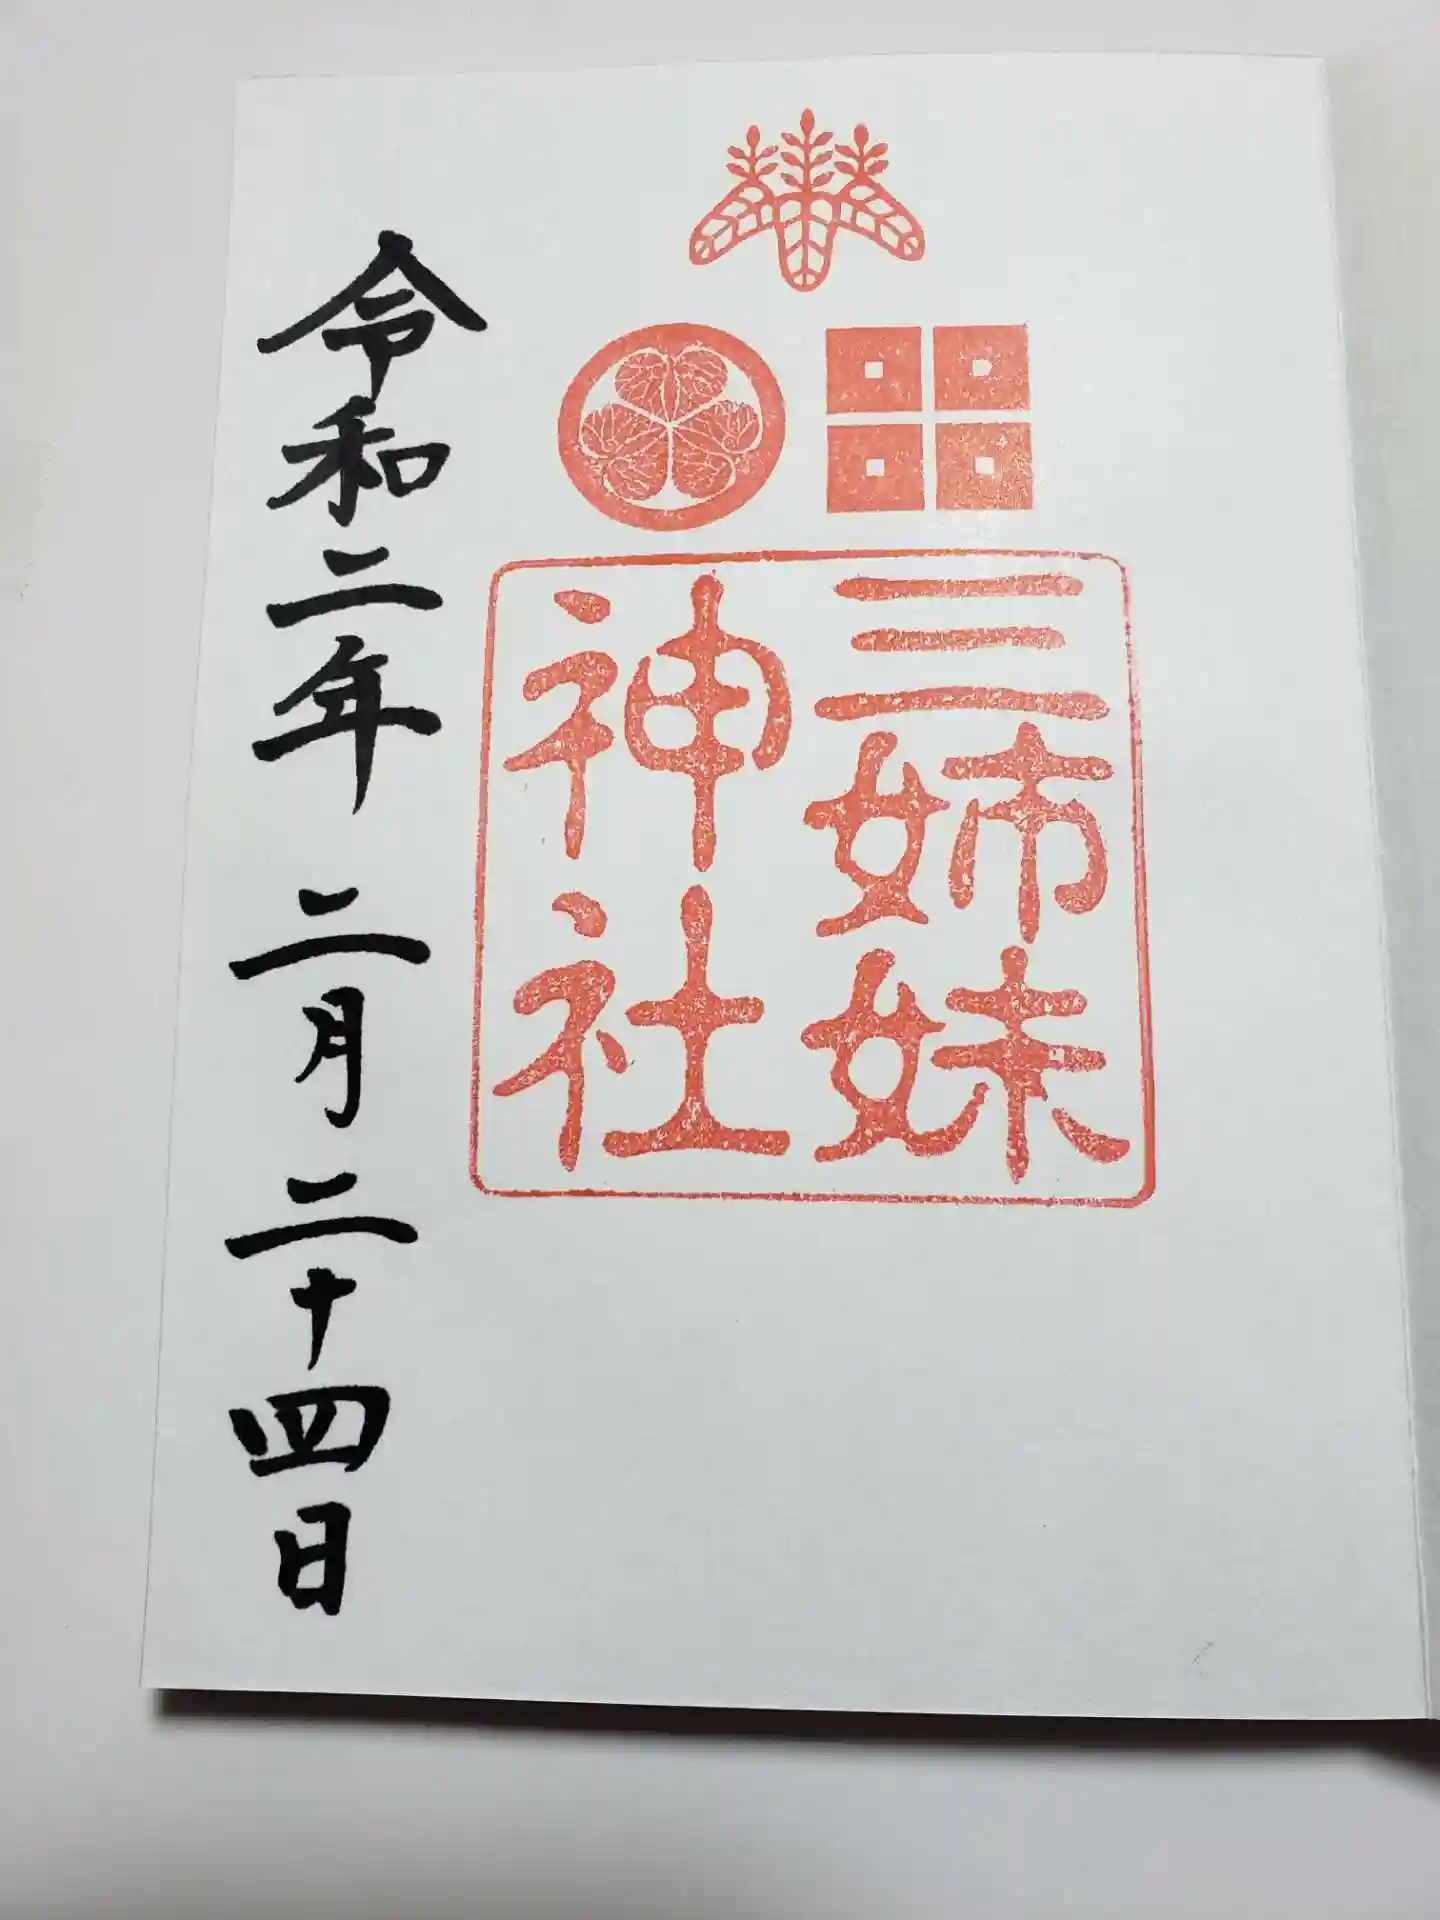 三姉妹
神社
令和二年 二月 二十四日